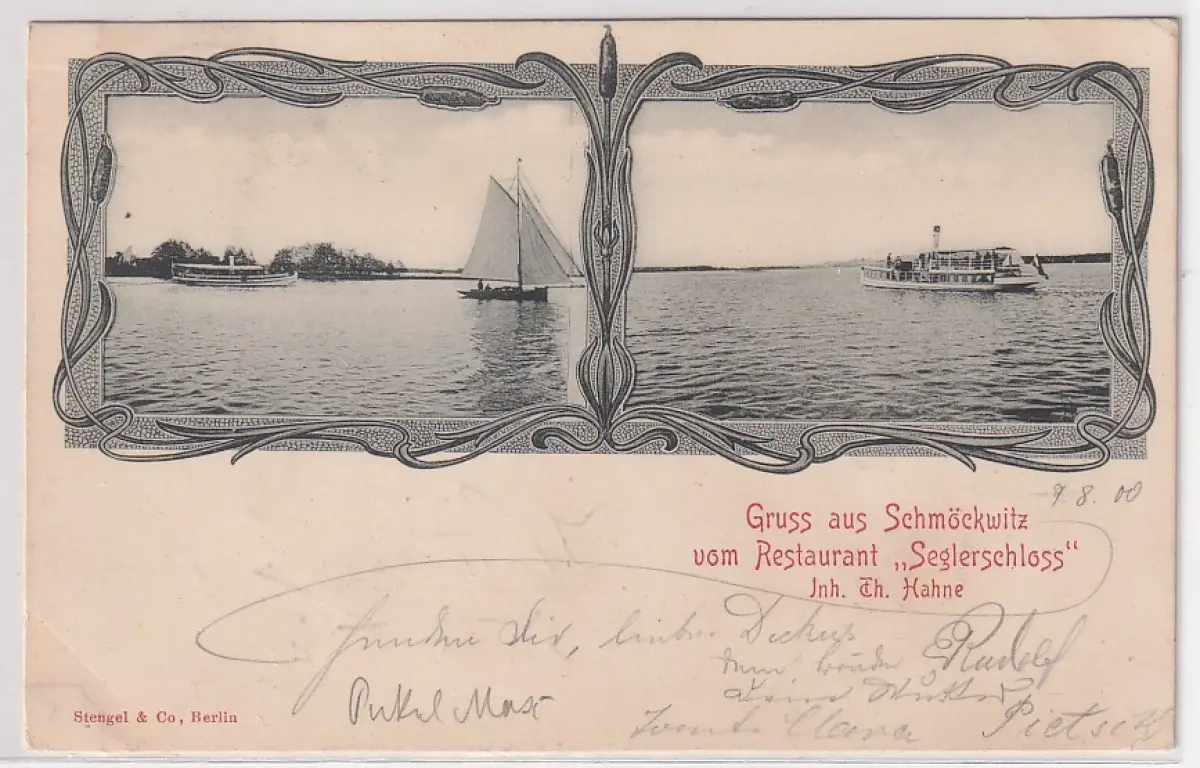 9. 8. 00
Gruss aus Schmöckwitz
vom Restaurant „Seglerschloss“
Inh. Th. Hahne
senden Dir, lieber
Dein Bruder Rudolf
Deine Mutter
Onkel Max
Tante Clara Pietsch
Stengel & Co, Berlin